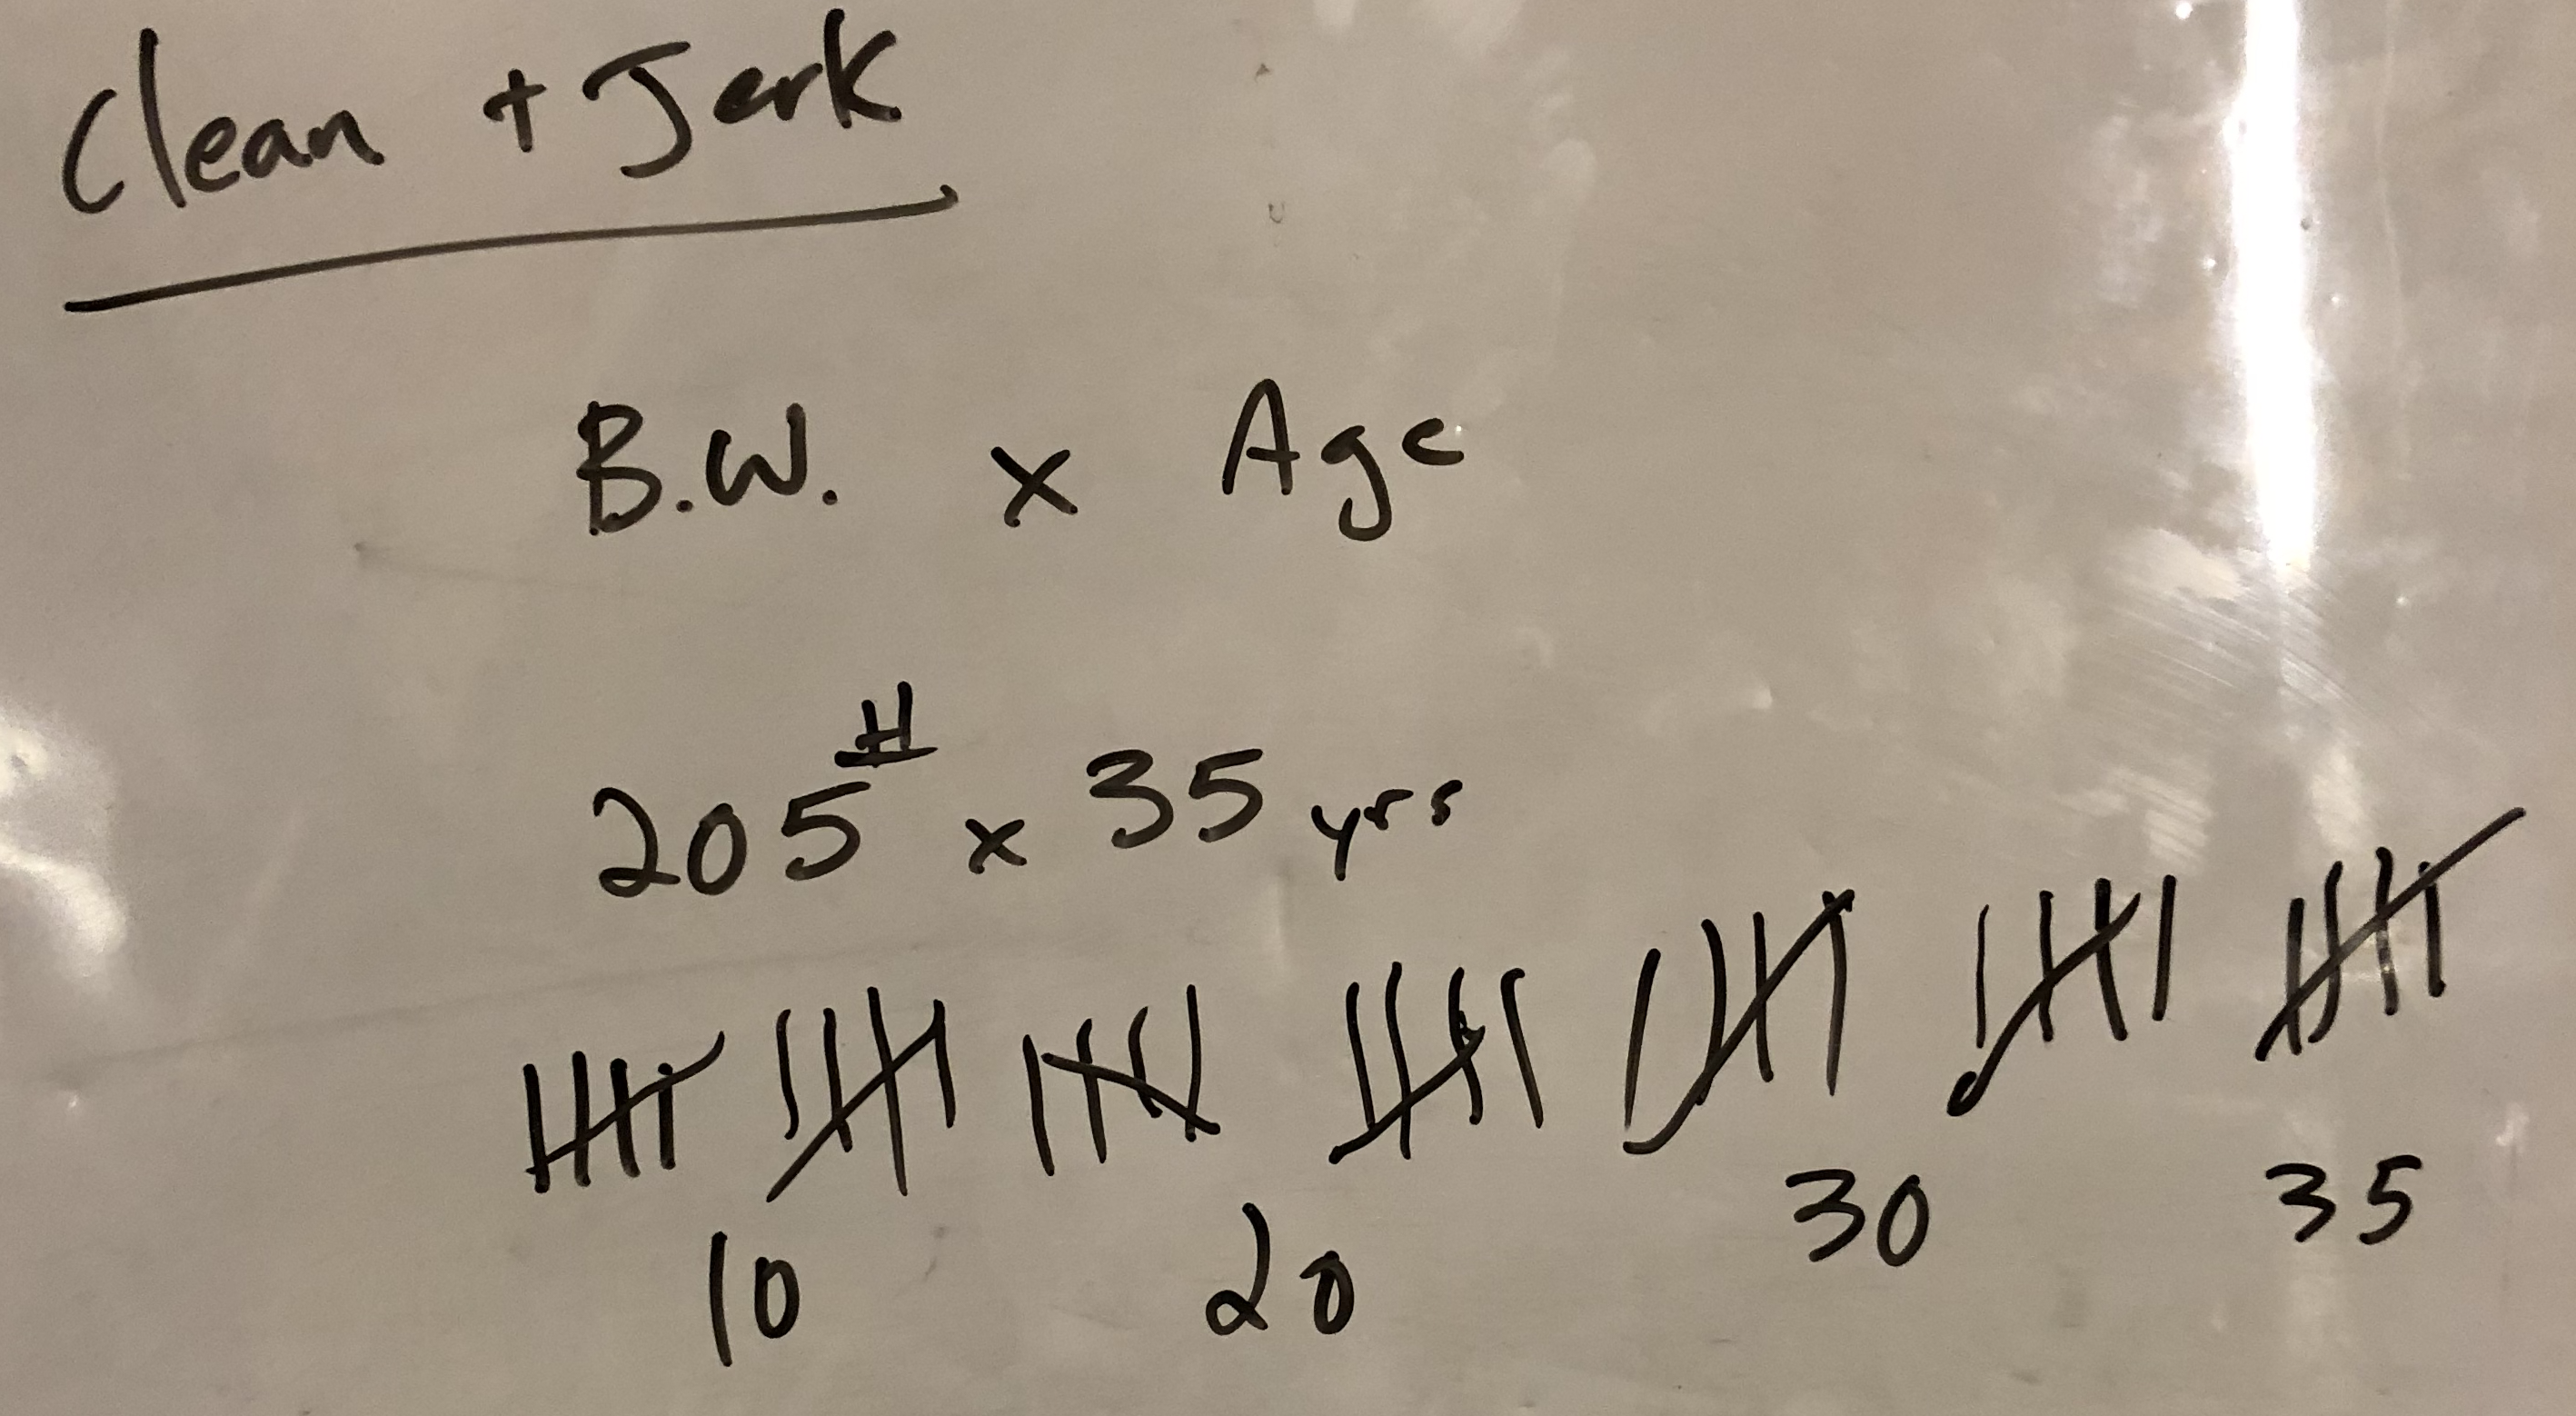 Clean + Jerk
B.W. x Age
205# x 35 yrs
10 20 30 35